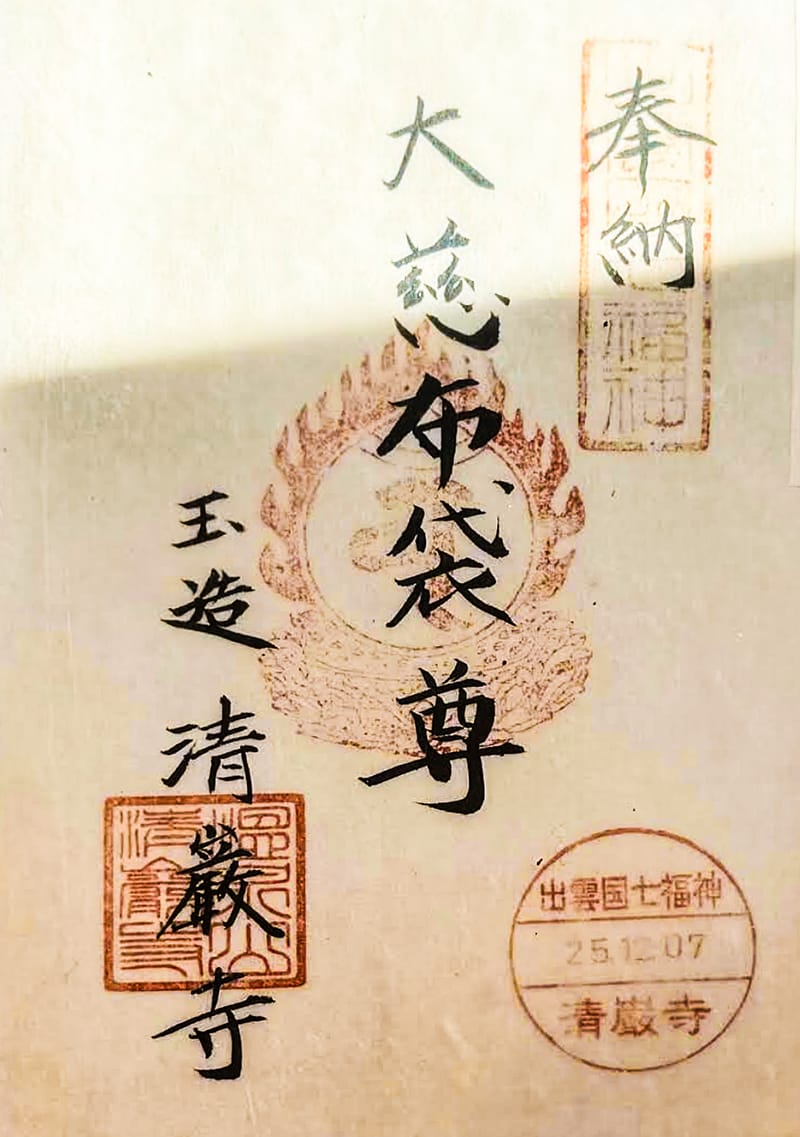 奉納
大慈布袋尊
玉造 清巌寺
出雲国七福神
25.12.07
清巌寺